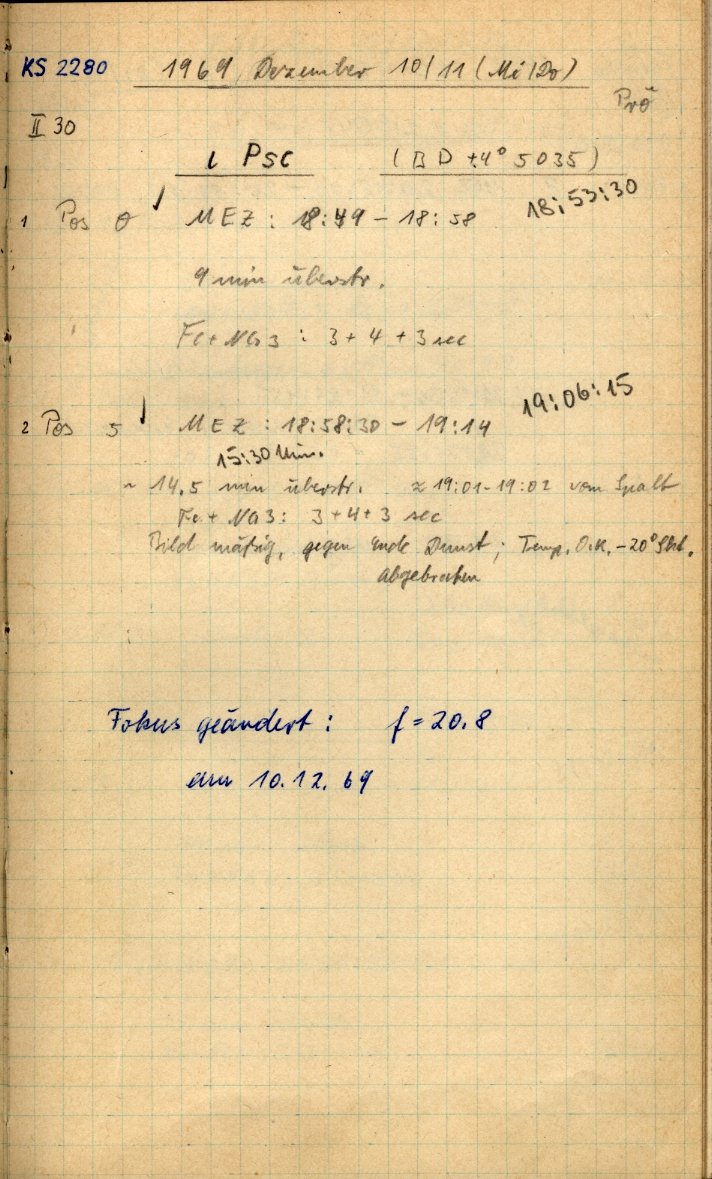 KS 2280 1969 Dezember 10/11 (Mi/Do)
Prö
II 30
ι Psc (BD +4° 5035)
1 Pos 0 MEZ: 18:49 – 18:58 18:53:30
9 min überstr.
Fe + NG3 : 3 + 4 + 3 sec
2 Pos 5 MEZ : 18:58:30 – 19:14 19:06:15
15:30 Min.
~ 14,5 min überstr. ≈ 19:01-19:02 vom Spalt
Fe + NG3: 3+4+3 sec
Bild mäßig, gegen Ende Dunst; Temp. O.K. -20° Skt.
abgebrochen
Fokus geändert: f = 20.8
am 10.12.69